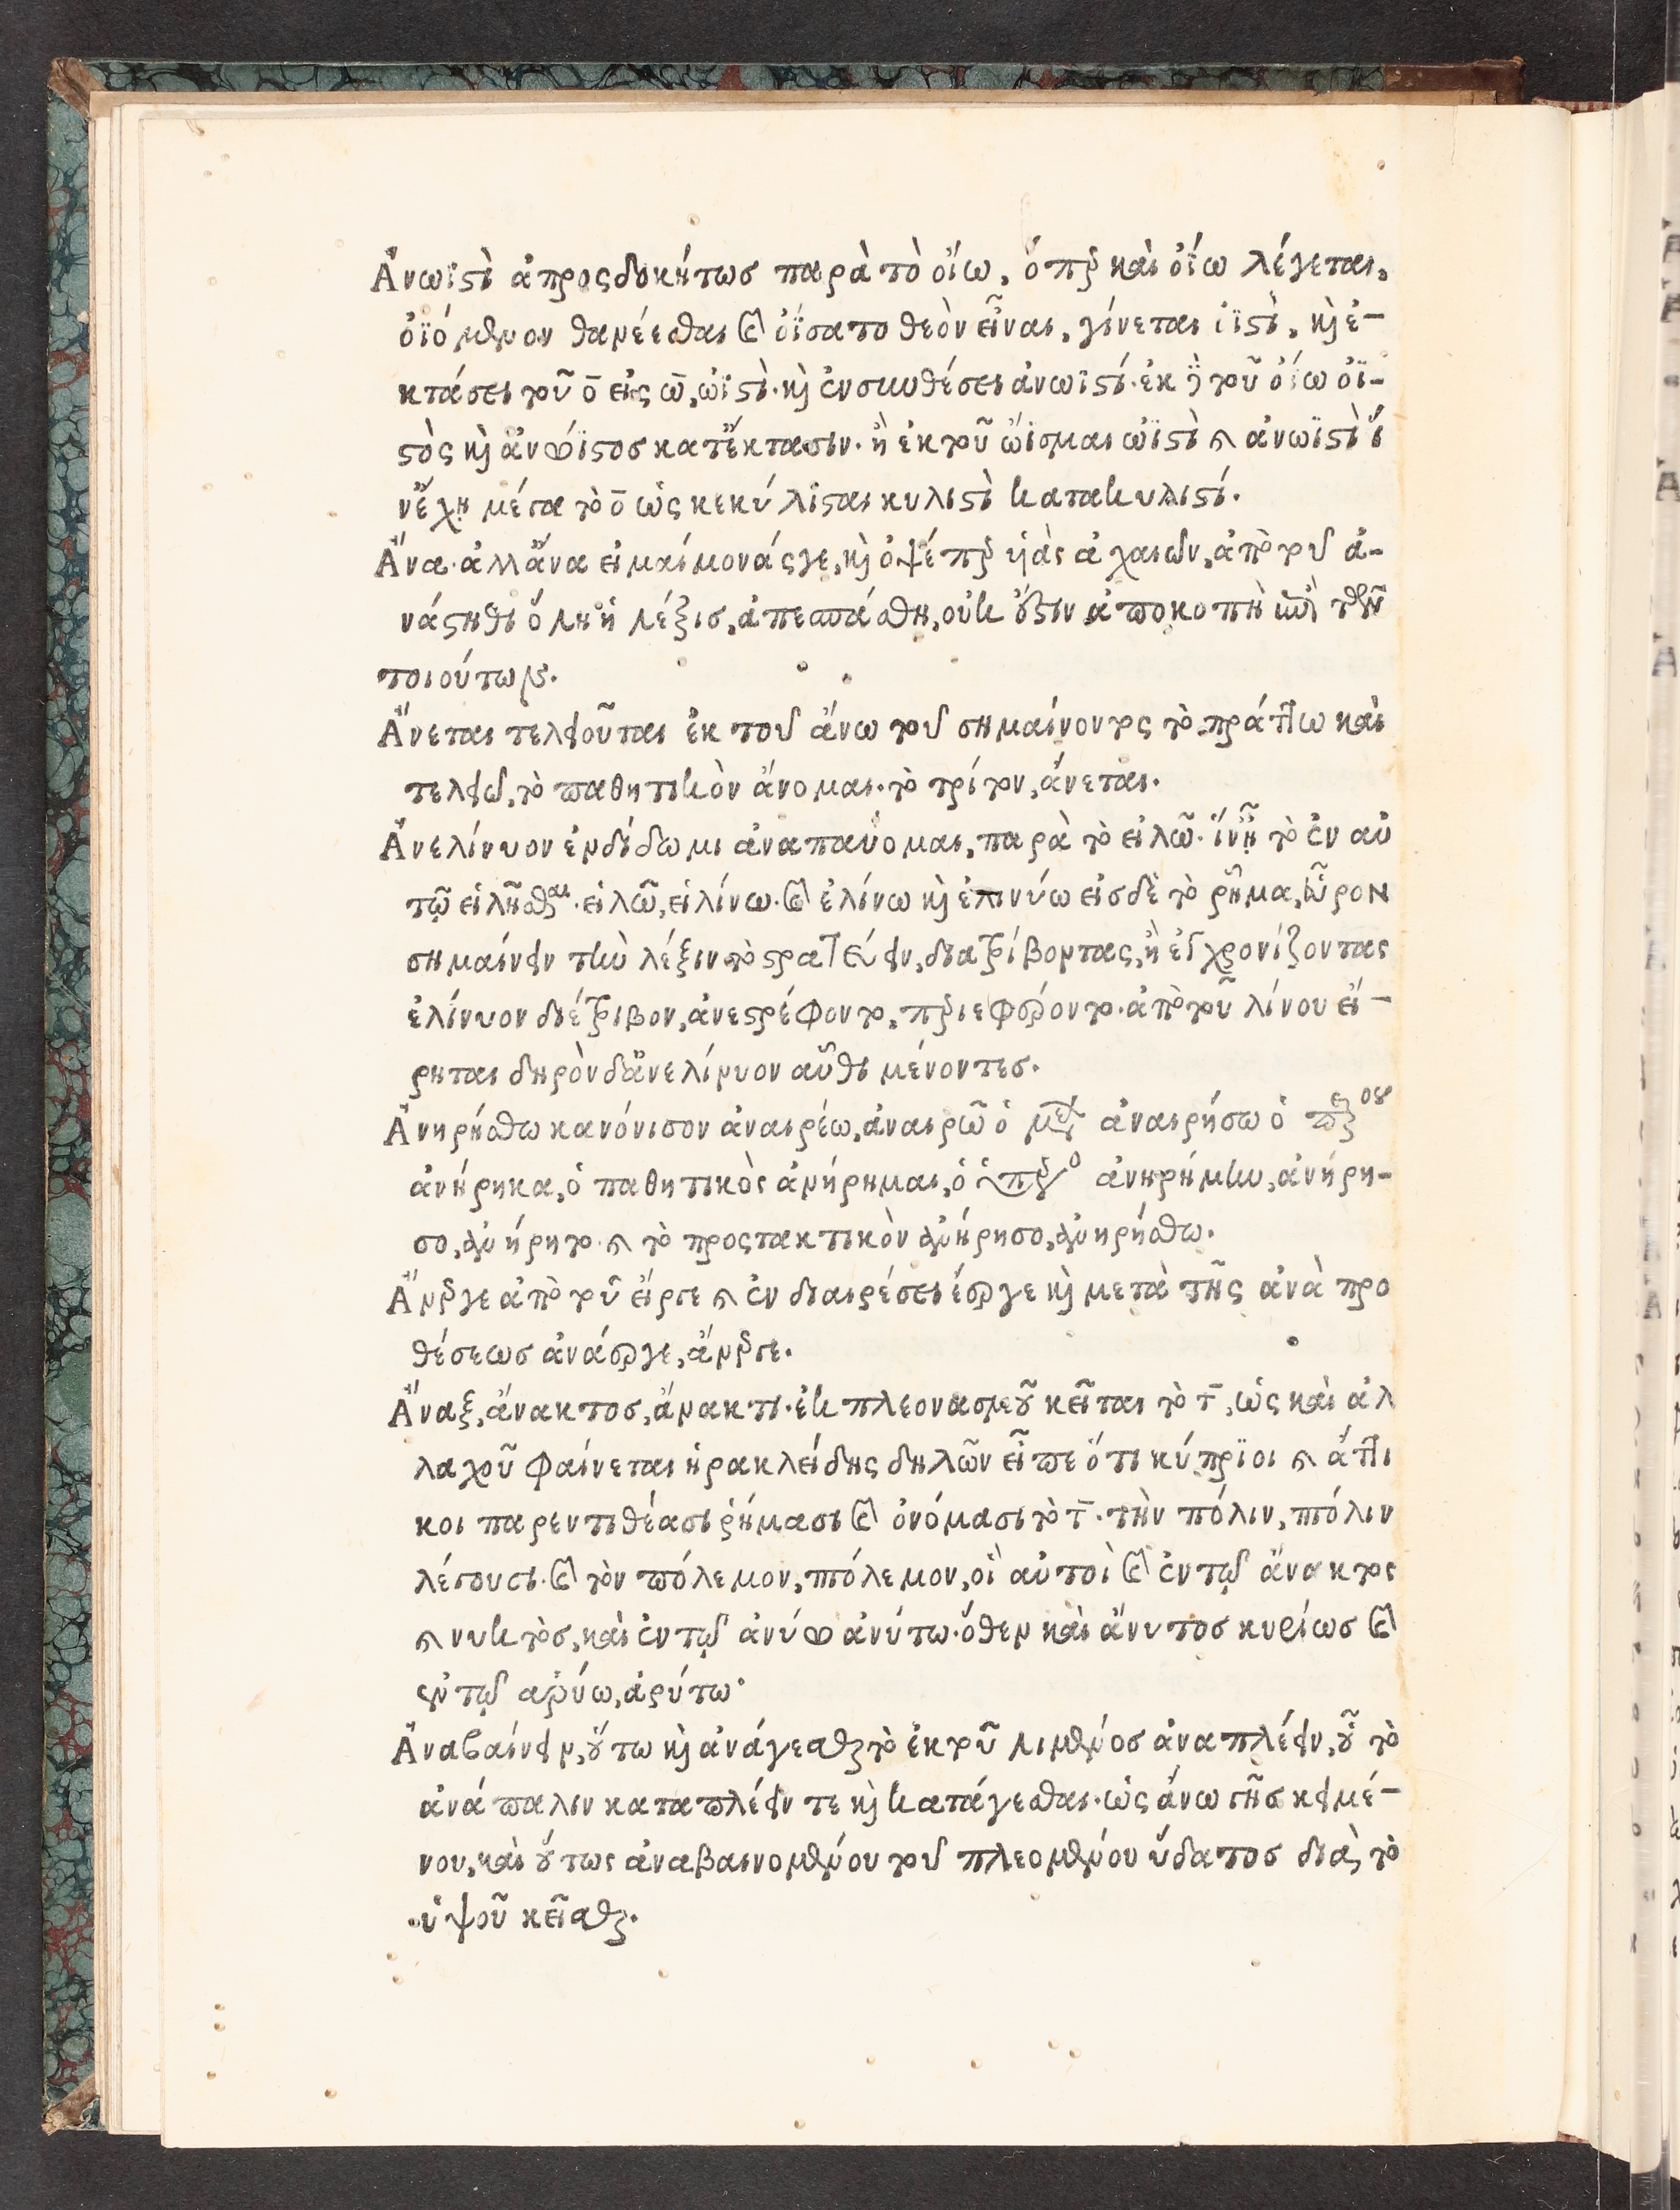 Ἀνωϊστὶ ἀπροσδοκήτωσ παρὰ τὸ οἴω, ὅπερ καὶ ὀΐω λέγεται,
ὀϊόμενον θανέεσθαι καὶ ὀΐσατο θεὸν εἶναι, γίνεται ὀϊστὶ, καὶ ἐ-
κτάσει τοῦ ο̄ εἰς ω̄, ὠϊστὶ· καὶ ἐν συνθέσει ἀνωϊστί· ἐκ δὲ τοῦ ὀΐω ὀϊ-
στὸς καὶ ἀνώϊστοσ κατ' ἔκτασιν· ἢ ἐκ τοῦ ὤϊσμαι ὠϊστὶ καὶ ἀνωϊστὶ ἵ
ν' ἔχῃ μέγα τὸ ο̄ ὡς κεκύλισται κυλιστὶ κατακυλιστί.
Ἄνα· ἀλλ' ἄνα εἰ μέμονάς γε, καὶ ὀψέ περ υἷας ἀχαιῶν, ἀπὸ τοῦ ἀ-
νάστηθι ὅλη ἡ λέξισ, ἀπεσπάσθη, οὐκ ἔστιν ἀποκοπὴ ἐπὶ τῶν
τοιούτων.
Ἄνεται τελειοῦται ἐκ τοῦ ἄνω τοῦ σημαίνοντος τὸ πράττω καὶ
τελειῶ, τὸ παθητικὸν ἄνομαι· τὸ τρίτον, ἄνεται.
Ἀνελίνυον ἐνδίδωμι ἀναπαύομαι, παρὰ τὸ εἰλῶ· ἵν' ᾖ τὸ ἐν αὐ
τῷ εἰλῆσθαι· εἰλῶ, εἰλίνω· καὶ ἐλίνω καὶ ἐλινύω εἰσδὲ τὸ ῥῆμα, εὗρον
σημαίνειν τὴν λέξιν τὸ στρατεύειν, διατρίβοντας, ἢ ἐγχρονίζοντας
ἐλίνυον διέτριβον, ἀνεστρέφοντο, περιεφέροντο· ἀπὸ τοῦ λίνου εἴ-
ρηται δηρὸν δ' ἀνελίνυον αὖθι μένοντεσ.
Ἀνηρήσθω κανόνισον ἀναιρέω, ἀναιρῶ ὁ μέλλων ἀναιρήσω ὁ παρακείμενος
ἀνήρηκα, ὁ παθητικὸς ἀνήρημαι, ὁ ὑπερσυντέλικος ἀνηρήμην, ἀνήρη-
σο, ἀνήρητο· καὶ τὸ προστακτικὸν ἀνήρησο, ἀνηρήσθω.
Ἄνεργε ἀπὸ τοῦ εἴργε καὶ ἐν διαιρέσει ἔεργε καὶ μετὰ τῆς ἀνὰ προ
θέσεωσ ἀνάεργε, ἄνεργε.
Ἄναξ, ἄνακτοσ, ἄνακτι· ἐκ πλεονασμοῦ κεῖται τὸ τ̄, ὡς καὶ ἀλ
λαχοῦ φαίνεται ἡρακλείδης δηλῶν εἶπε ὅτι κύπριοι καὶ ἀττι
κοι παρεντιθέασι ῥήμασι καὶ ὀνόμασι τὸ τ̄· τὴν πόλιν, πτόλιν
λέγουσι· καὶ τὸν πόλεμον, πτόλεμον, οἱ αὐτοὶ καὶ ἐν τῷ ἄνακτος
καὶ νυκτὸσ, καὶ ἐν τῷ ἀνύω ἀνύτω· ὅθεν καὶ ἄνυτοσ κυρίωσ καὶ
ἐν τῷ ἀρύω, ἀρύτω·
Ἀναβαίνειν, οὕτω καὶ ἀνάγεσθαι τὸ ἐκ τοῦ λιμένοσ ἀναπλέειν, οὗ τὸ
ἀνάπαλιν καταπλέειν τε καὶ κατάγεσθαι· ὡς ἄνω γῆσ κειμέ-
νου, καὶ οὕτως ἀναβαινομένου τοῦ πλεομένου ὕδατοσ διὰ τὸ
ὑψοῦ κεῖσθαι.